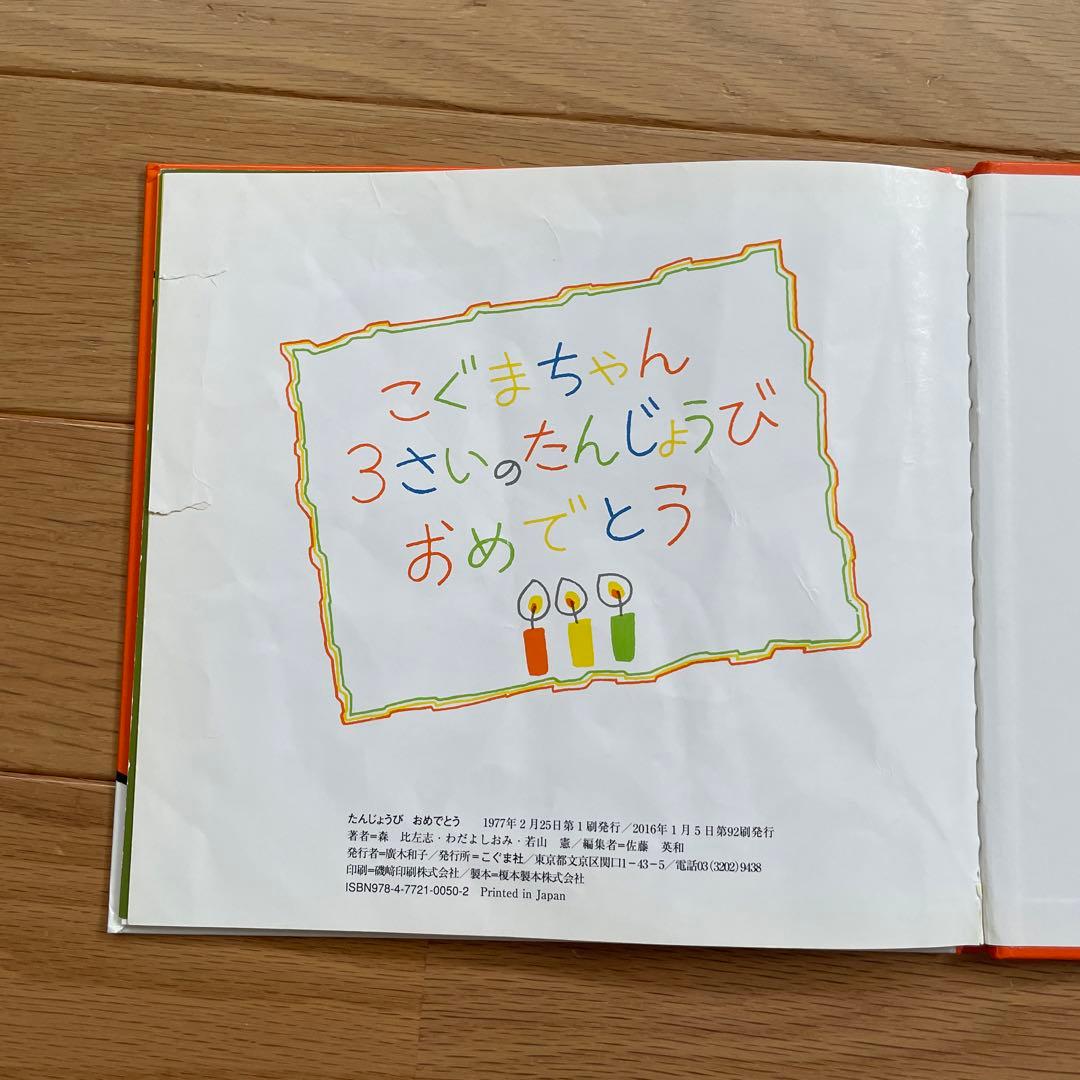 こぐまちゃん
3さいのたんじょうび
おめでとう
たんじょうび おめでとう 1977年2月25日第1刷発行/2016年1月5日第92刷発行
著者=森 比左志・わだよしおみ・若山 憲/編集者=佐藤 英和
発行者=廣木和子/発行所=こぐま社/東京都文京区関口1-43-5/電話03(3202)9438
印刷=磯﨑印刷株式会社/製本=榎本製本株式会社
ISBN978-4-7721-0050-2 Printed in Japan